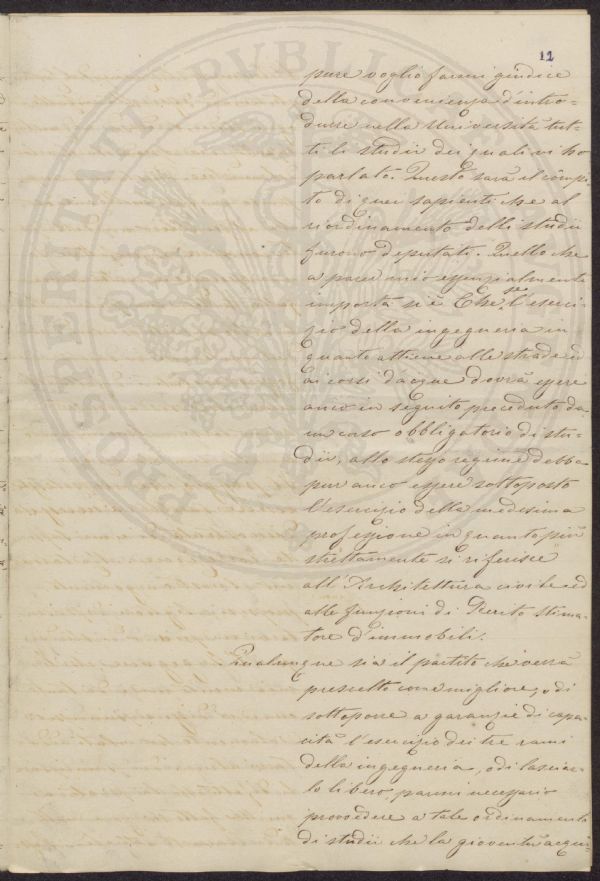 12
pure voglio farmi giudice
della convenienza d'intro-
durre nella Università tut-
ti li studii dei quali vi ho
parlato. Questo sarà il còmpi-
to di quei sapienti che al
riordinamento delli studii
furono deputati. Quello che
a parer mio essenzialmente
importa si è Che, se l'eserci-
zio della ingegneria in
quanto attiene alle strade ed
ai corsi d'acque dovrà essere
anco in seguito preceduto da
un corso obbligatorio di stu-
dii, allo stesso regime debba
pur anco essere sottoposto
l'esercizio della medesima
professione in quanto più
strettamente si riferisce
all'Architettura civile ed
alle funzioni di Perito stima-
tore d'immobili.
Qualunque sia il partito che verrà
prescelto come migliore, o di
sottoporre a garanzie di capa-
cità l'esercizio dei tre rami
della ingegneria, o di lasciar-
lo libero, parmi necessario
provvedere a tale ordinamento
di studii che la gioventù acqui-
PROSPERITATI PVBLICAE